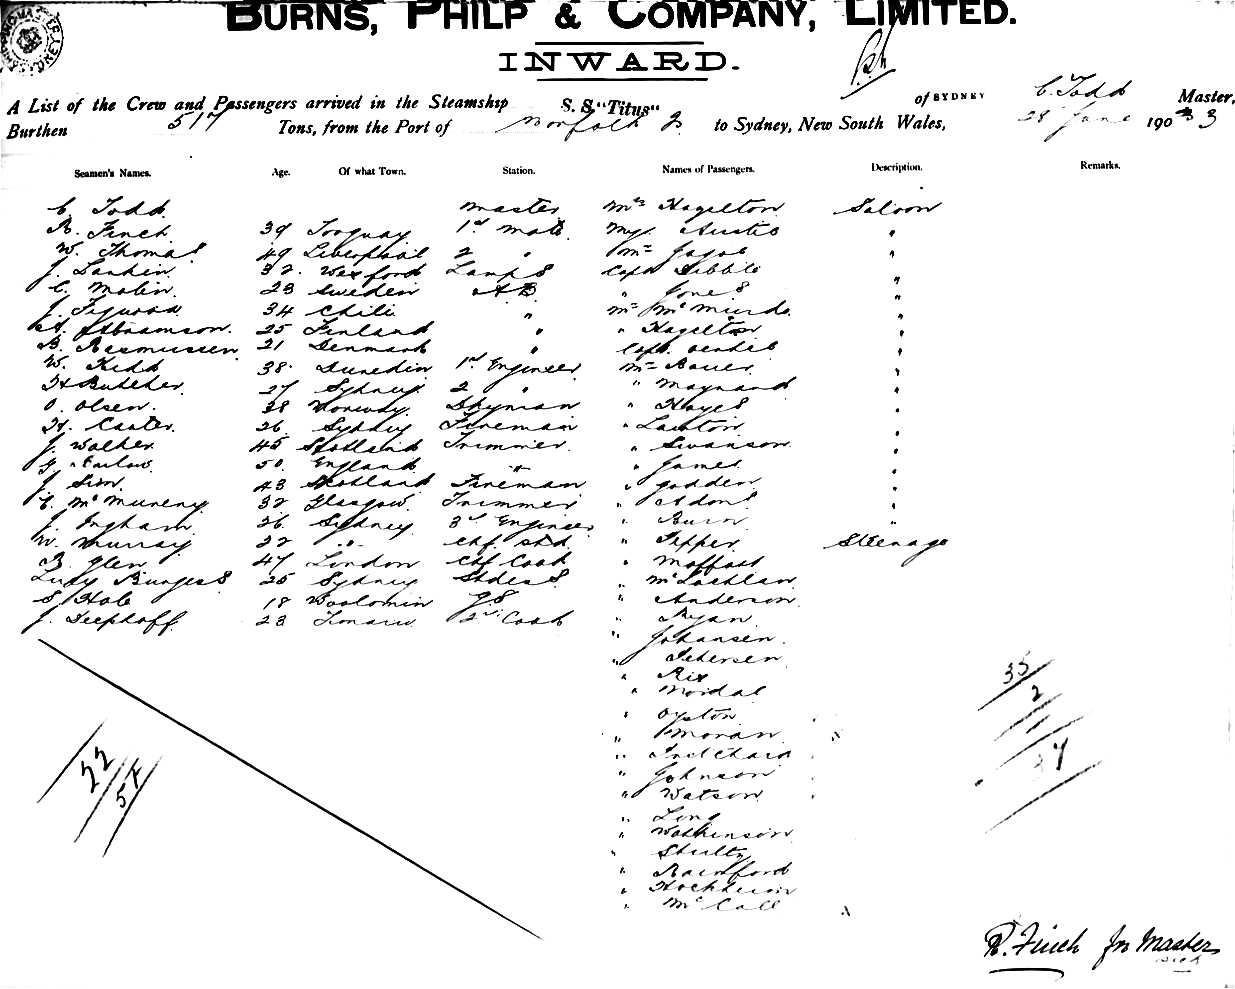 BURNS, PHILP & COMPANY, LIMITED.
INWARD.
A List of the Crew and Passengers arrived in the Steamship S. S. "Titus" of SYDNEY C. Todd Master,
Burthen 517 Tons, from the Port of Norfolk I to Sydney, New South Wales, 28 June 1903
Seamen's Names. Age. Of what Town. Station. Names of Passengers. Description. Remarks.
C. Todd Master Mrs Hazelton Saloon
R. Finch 39 Torquay 1st Mate Mrs "
W. Thomas 49 Liverpool 2 " "
J. Larkin 32 Wexford Lamps Capt Dibble "
C. Malin 23 Sweden AB " Jones "
J. 34 Chili " "
Abramson. 25 Finland " " Hazelton "
B. Rasmussen 21 Denmark " Capt. "
W. Kidd 38 Dunedin 1st Engineer Mr Bauer "
H Butcher 27 Sydney 2 " " Maynard "
O. Olsen. 38 Norway. Dkyman " Hayes "
H. Carter. 26 Sydney Fireman " Lawton "
J. Walker 45 Scotland Trimmer " Swanson "
50 England " " James "
J. Sim. 43 Scotland Fireman " Godden "
C. McMurray 32 Glasgow. Trimmer " "
J. Ingham 26 Sydney 3rd Engineer " Burn "
W. Murray 22 " Chf. Std. " Pepper Steerage
B. Glen 47 London Chf Cook " Moffatt
Lucy Burgess 25 Sydney Stdess " McLachlan
S. Hole 18 Woolomin GS " Anderson
J. Deephoff 23 Timaru 2nd Cook " Ryan
" Johansen
" Petersen
" Rix
" Mordal
" Oyston
" Moran
" Pritchard
" Johnson
" Watson
" Long
" Watkinson
" Shultz
" Rainford
" Hochheim
" McCall
35
2
37
22
57
R. Finch for Master
sick